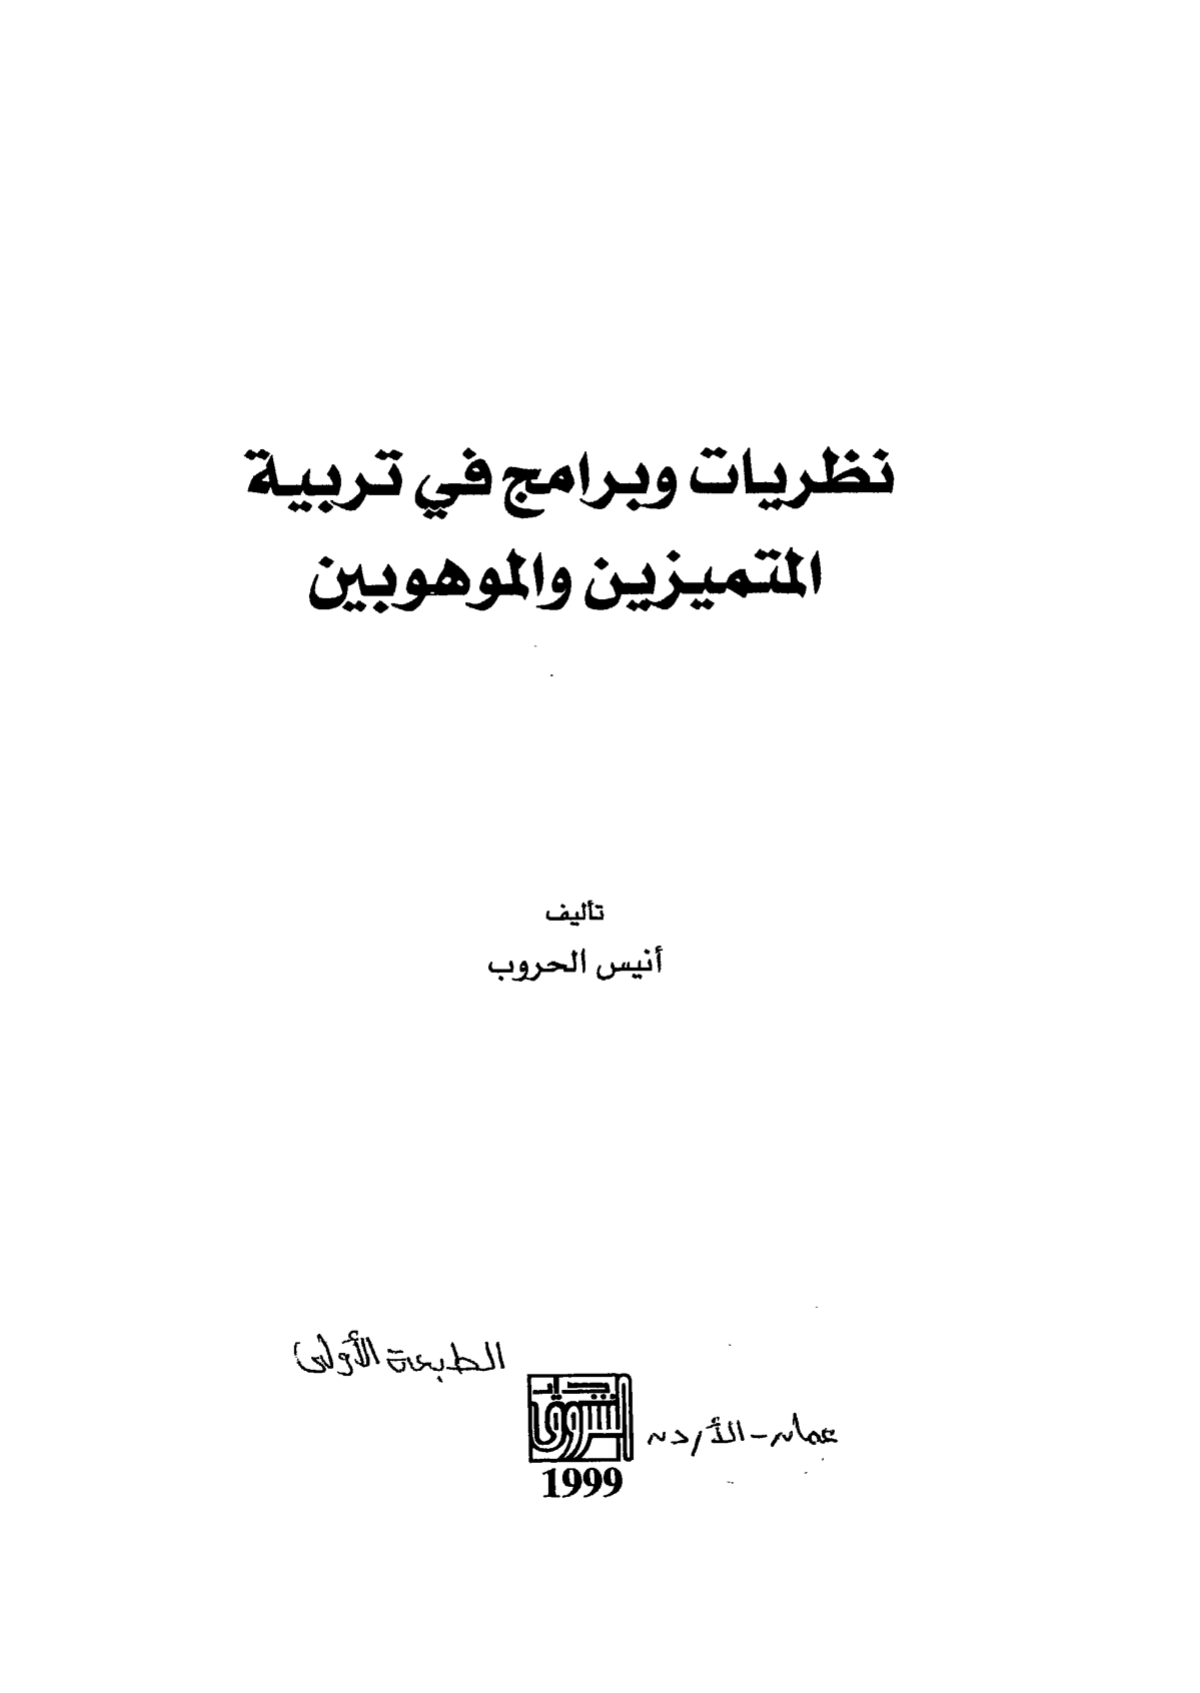 نظريات وبرامج في تربية
المتميزين والموهوبين
تأليف
أنيس الحروب
الطبعة الأولى
دار الشروق
عمان - الأردن
1999